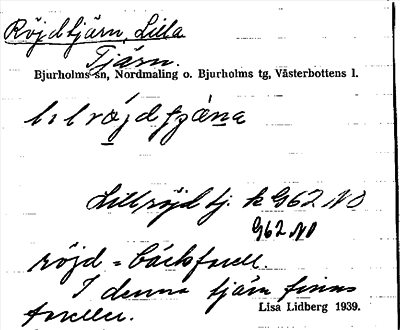 Röjdtjärn, Lilla
Tjärn.
Bjurholms sn, Nordmaling o. Bjurholms tg, Västerbottens l.
Lillröjdtj. k G62 NO
G62 NO
röjd = bäckforell.
I denna tjärn finns
foreller.
Lisa Lidberg 1939.